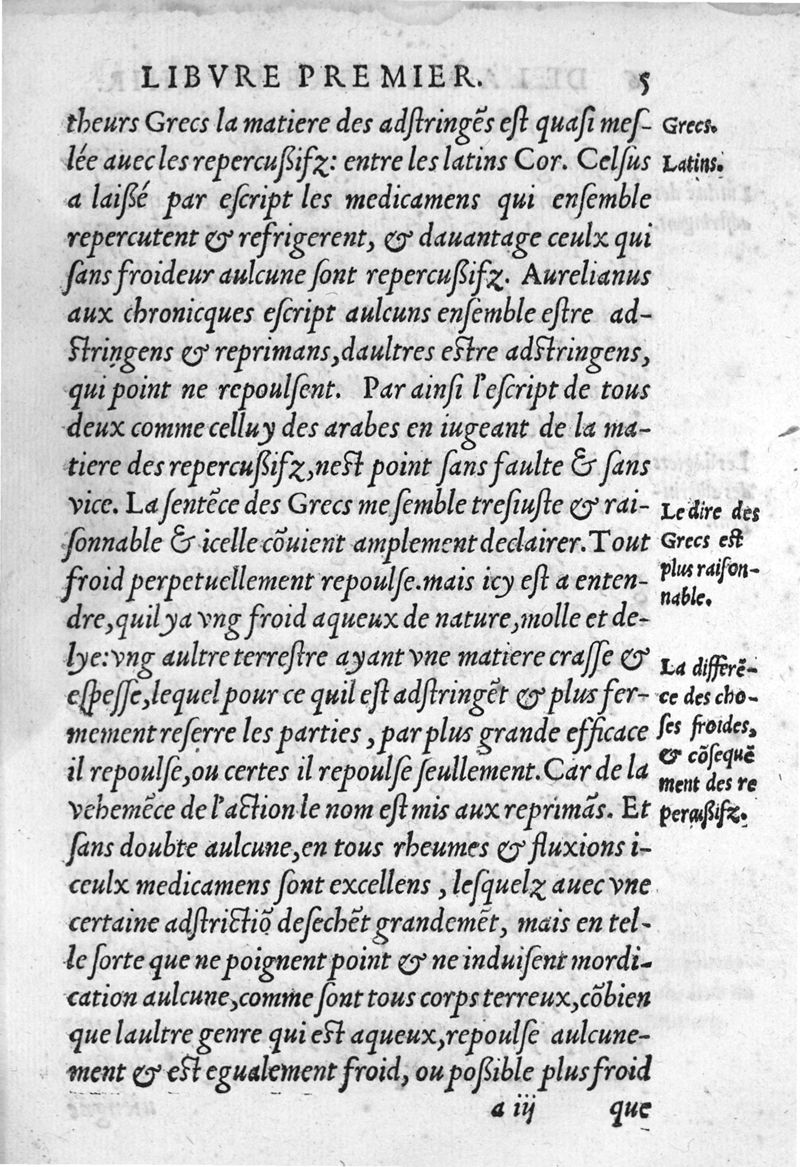 LIBVRE PREMIER. 5
theurs Grecs la matiere des adſtringẽs eſt quaſi meſ-
lée auec les repercußifz: entre les latins Cor. Celſus
a laißé par eſcript les medicamens qui enſemble
repercutent & refrigerent, & dauantage ceulx qui
ſans froideur aulcune ſont repercußifz. Aurelianus
aux chronicques eſcript aulcuns enſemble eſtre ad-
ſtringens & reprimans, daultres eſtre adſtringens,
qui point ne repoulſent. Par ainſi l'eſcript de tous
deux comme celluy des arabes en iugeant de la ma-
tiere des repercußifz, neſt point ſans faulte & ſans
vice. La ſentẽce des Grecs me ſemble treſiuſte & rai-
ſonnable & icelle cõuient amplement declairer. Tout
froid perpetuellement repoulſe. mais icy eſt a enten-
dre, quil ya vng froid aqueux de nature, molle et de-
lye: vng aultre terreſtre ayant vne matiere craſſe &
eſpeſſe, lequel pour ce quil eſt adſtringẽt & plus fer-
mement reſerre les parties, par plus grande efficace
il repoulſe, ou certes il repoulſe ſeullement. Car de la
vehemẽce de l'action le nom eſt mis aux reprimãs. Et
ſans doubte aulcune, en tous rheumes & fluxions i-
ceulx medicamens ſont excellens, leſquelz auec vne
certaine adſtrictiõ deſechẽt grandemẽt, mais en tel-
le ſorte que ne poignent point & ne induiſent mordi-
cation aulcune, comme ſont tous corps terreux, cõbien
que laultre genre qui eſt aqueux, repoulſe aulcune-
ment & eſt egualement froid, ou poßible plus froid
a iij que
Grecs.
Latins.
Le dire des
Grecs eſt
plus raiſon-
nable.
La differẽ-
ce des cho-
ſes froides,
& cõſequẽ
ment des re
percußifz.